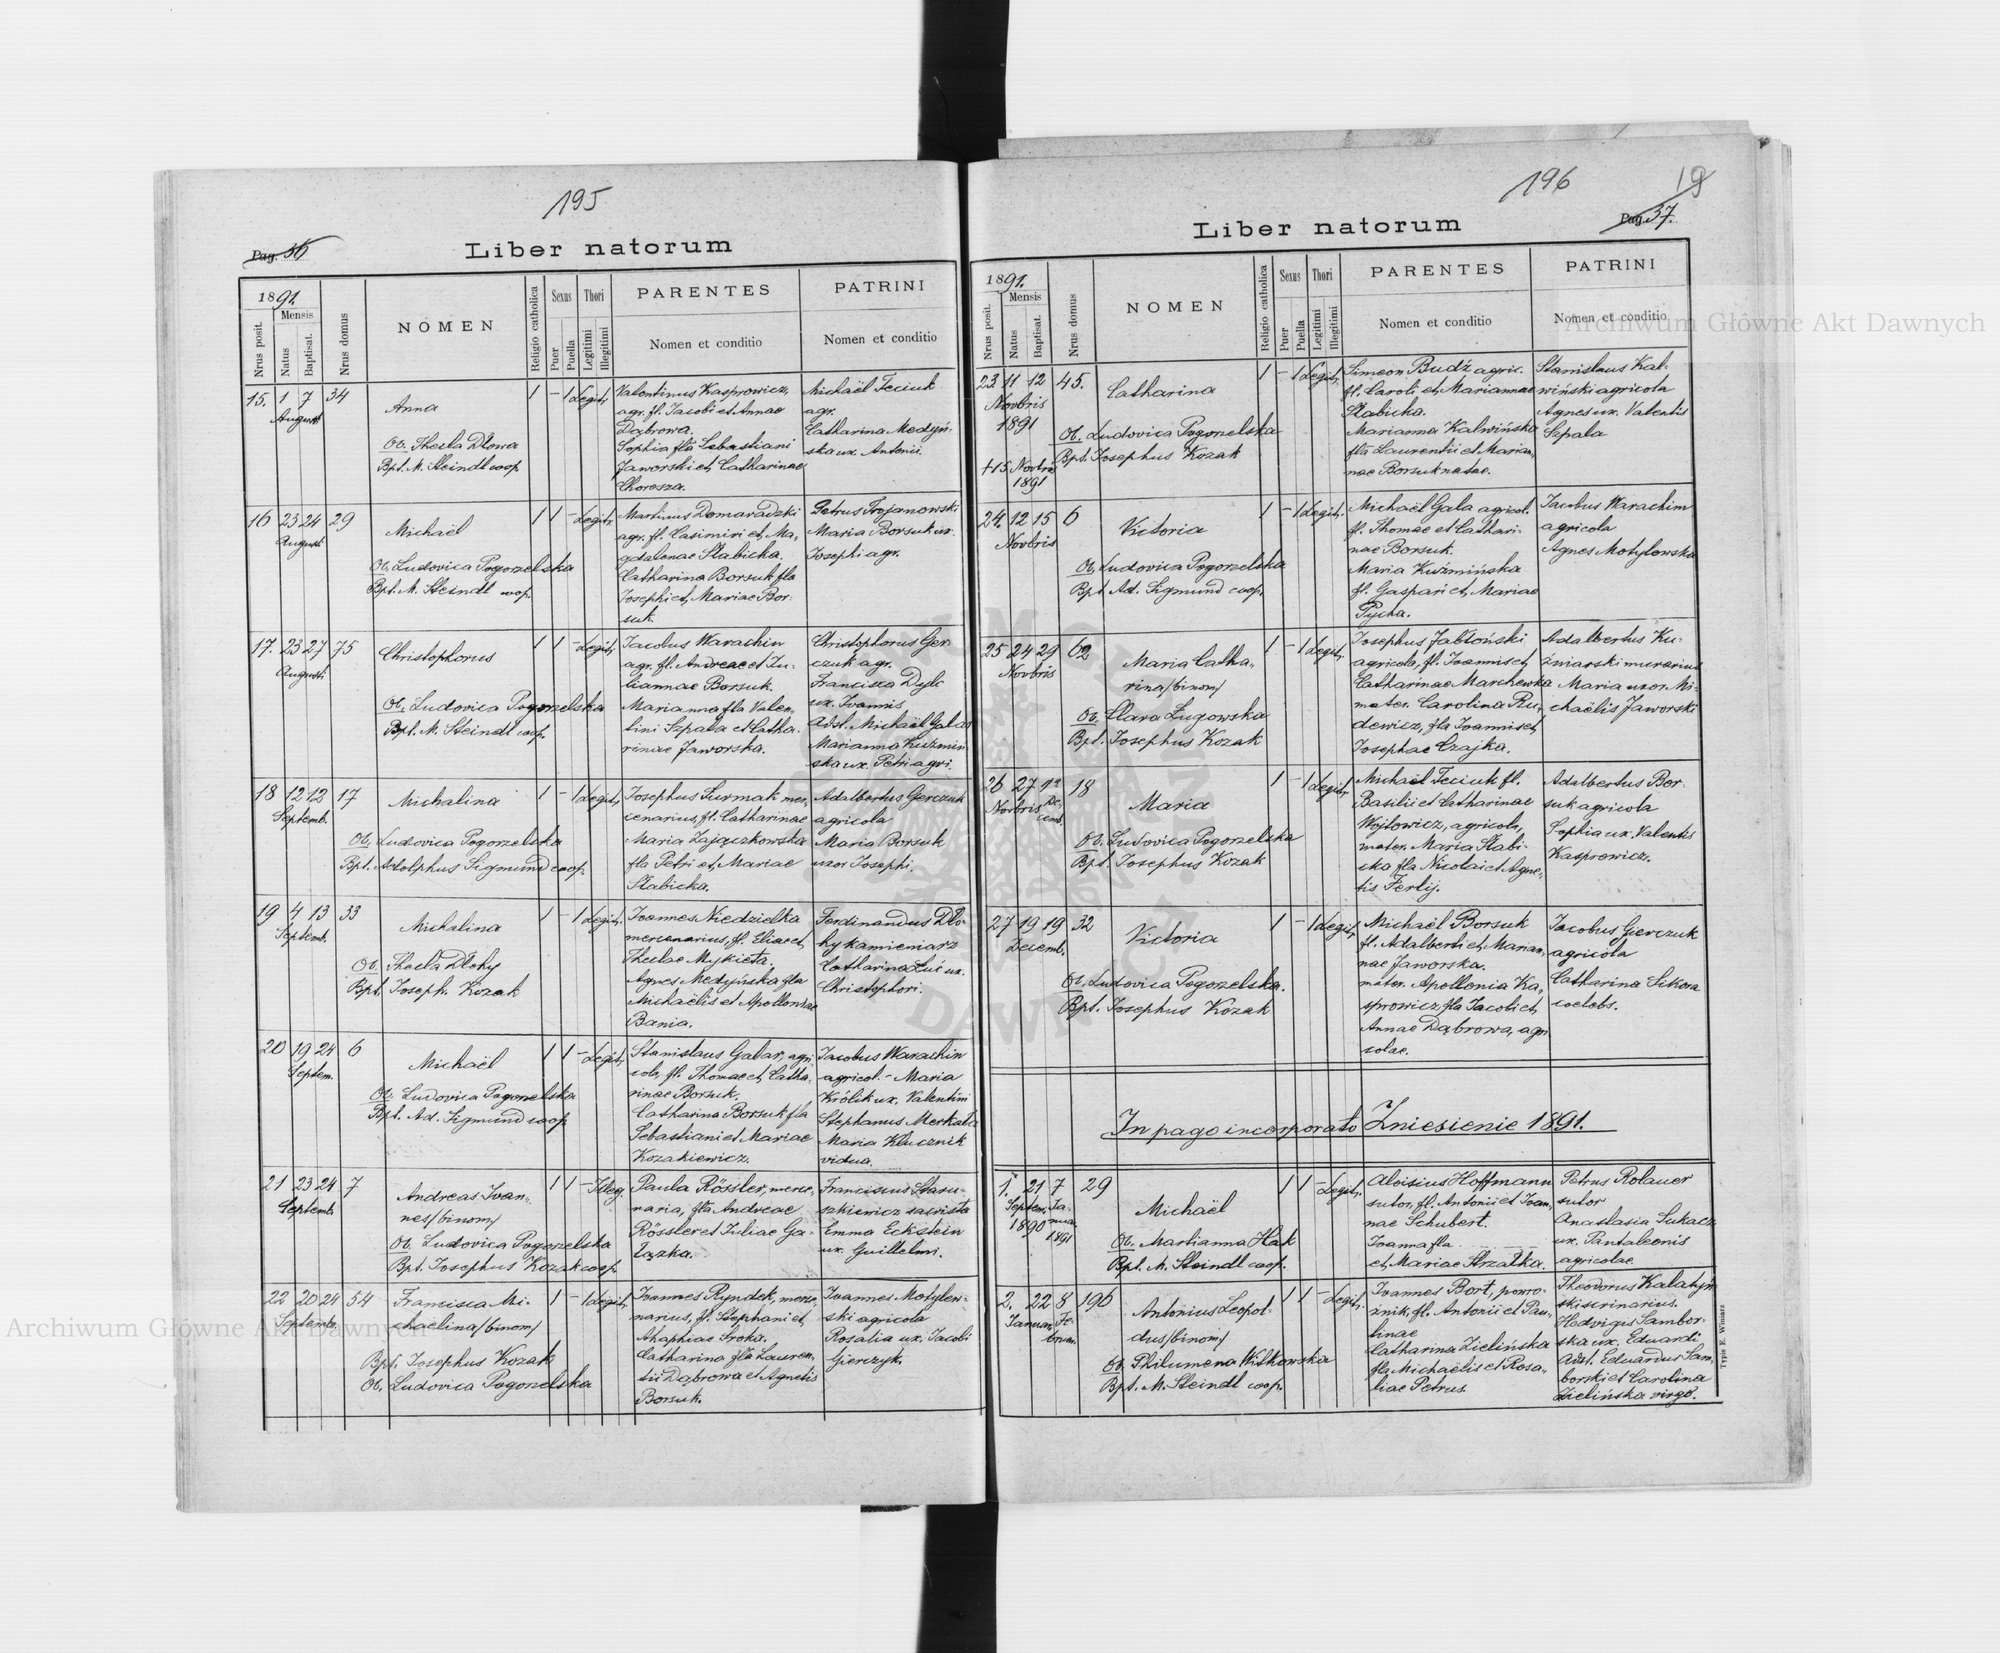 195
Pag. 36
Liber natorum
1891.
Mensis
Nrus posit.
Natus
Baptisat.
Nrus domus
NOMEN
Religio catholica
Sexus
Puer
Puella
Thori
Legitimi
Illegitimi
PARENTES
Nomen et conditio
PATRINI
Nomen et conditio
15. 1 7 34
Augusti
Anna
Ob. Thecla Dłowa
Bpt. M. Steindl coop
1 – 1 Legit.
Valentinus Kasprowicz,
agr. fl. Jacobi et Annae
Dąbrowa.
Sophia fla Sebastiani
Jaworski et Catharinae
Chorosza.
Michaël Feciuk
agr.
Catharina Medyń-
ska ux. Antonii.
16 23 24 29
Augusti
Michaël
Ob. Ludovica Pogorzelska
Bpt. M. Steindl coop.
1 1 – Legit.
Martinus Domaradzki
agr. fl. Casimiri et Ma-
gdalenae Słabicka.
Catharina Borsuk fla
Josephi et Mariae Bor-
suk.
Petrus Trojanowski
Maria Borsuk ux.
Josephi agr.
17. 23 27 75
Augusti
Christophorus
Ob. Ludovica Pogorzelska
Bpt. M. Steindl coop.
1 1 – Legit.
Jacobus Warachin
agr. fl. Andreae et Ju-
liannae Borsuk.
Marianna fla Valen-
tini Szpala et Catha-
rinae Jaworska.
Christophorus Ger
czuk agr.
Francisca Dyle
ux. Joannis
Adst. Michaël Galas
Marianna Kuzmin
ska ux. Petri agri.
18 12 12 17
Septemb.
Michalina
Ob. Ludovica Pogorzelska
Bpt. Adolphus Sigmund coop.
1 – 1 Legit.
Josephus Surmak mer-
cenarius, fl. Catharinae
Maria Zajączkowska
fla Petri et Mariae
Słabicka.
Adalbertus Gerczuk
agricola
Maria Borsuk
uxor Josephi.
19 4 13 33
Septemb.
Michalina
Ob. Thecla Dłohy
Bpt. Joseph. Kozak
1 – 1 Legit.
Joannes Niedzielka
mercenarius, fl. Eliae et
Theclae Mykieta.
Agnes Medyńska fla
Michaëlis et Apolloniae
Bania.
Ferdinandus Dło-
hy kamieniarz
Catharina Luć ux.
Christophori.
20 19 24 6
Septem.
Michaël
Ob. Ludovica Pogorzelska
Bpt. Ad. Sigmund coop
1 1 – Legit.
Stanislaus Galar, agri
cola, fl. Thomae et Catha-
rinae Borsuk.
Catharina Borsuk fla
Sebastiani et Mariae
Kozakiewicz.
Jacobus Warachin
agricol. – Maria
Królik ux. Valentini
Stephanus Merkała
Maria Klucznik
vidua.
21 23 24 7
Septemb.
Andreas Joan-
nes /binom/
Ob. Ludovica Pogorzelska
Bpt. Josephus Kozak coop.
1 1 – Illeg.
Paula Rössler, merce-
naria, fla Andreae
Rössler et Juliae Ga-
łązka.
Franciscus Stasu-
szkiewicz sacrista
Emma Eckstein
ux. Guillelmi.
22 20 24 54
Septemb.
Francisca Mi-
chaelina /binom/
Bpt. Josephus Kozak
Ob. Ludovica Pogorzelska
1 – 1 Legit.
Joannes Ryndek, merce-
narius, fl. Stephani et
Ahaphiae Sroka.
Catharina fla Lauren-
tii Dąbrowa et Agnetis
Borsuk.
Joannes Motylew-
ski agricola
Rosalia ux. Jacobi
Gierczyk.
196
19
Pag. 37.
Liber natorum
1891.
Mensis
Nrus posit.
Natus
Baptisat.
Nrus domus
NOMEN
Religio catholica
Sexus
Puer
Puella
Thori
Legitimi
Illegitimi
PARENTES
Nomen et conditio
PATRINI
Nomen et conditio
23 11 12 45.
Novbris
1891
+ 15 Novbris
1891
Catharina
Ob. Ludovica Pogorzelska
Bpt. Josephus Kozak
1 – 1 Legit.
Simeon Budź agric.
fl. Caroli et Mariannae
Słabicka.
Marianna Kalwińska
fla Laurentii et Marian-
nae Borsuk natae.
Stanislaus Kal-
wiński agricola
Agnes ux. Valentis
Szpala
24. 12 15 6
Novbris
Victoria
Ob. Ludovica Pogorzelska
Bpt. Ad. Sigmund coop.
1 – 1 Legit.
Michaël Gala agricol.
fl. Thomae et Cathari-
nae Borsuk.
Maria Kuźmińska
fl. Gaspari et Mariae
Pycha.
Jacobus Warachim
agricola
Agnes Motylowska
25 24 29 62
Novbris
Maria Catha-
rina /binom/
Ob. Clara Ługowska
Bpt. Josephus Kozak
1 – 1 Legit.
Josephus Jabłoński
agricola, fl. Joannis et
Catharinae Marchewka
mater. Carolina Ru-
dewicz, fla Joannis et
Josephae Czajka.
Adalbertus Ku-
źniarski murarius
Maria uxor Mi-
chaëlis Jaworski
26 27 1a 18
Novbris De-
cemb.
Maria
Ob. Ludovica Pogorzelska
Bpt. Josephus Kozak
1 – 1 Legit.
Michaël Feciuk fl.
Basilii et Catharinae
Wojtowicz, agricola,
mater. Maria Słabi-
cka fla Nicolai et Agne-
tis Ferlij.
Adalbertus Bor-
suk agricola
Sophia ux. Valentis
Kasprowicz.
27 19 19 32
Decemb.
Victoria
Ob. Ludovica Pogorzelska.
Bpt. Josephus Kozak
1 – 1 Legit.
Michaël Borsuk
fl. Adalberti et Marian-
nae Jaworska.
mater. Apollonia Ka-
sprowicz, fla Jacobi et
Annae Dąbrowa, agri
colae.
Jacobus Gierczuk
agricola
Catharina Sikora
coelebs.
In pago incorporato Zniesienie 1891.
1. 21 7 29
Septem. Ja-
1890 nuar.
1891
Michaël
Ob. Martianna Hak
Bpt. M. Steindl coop.
1 1 – Legit.
Aloisius Hoffmann
sutor, fl. Antonii et Joan-
nae Schubert.
Joanna fla
et Mariae Strzałka.
Petrus Rolauer
sutor
Anastasia Sukacz
ux. Pantaleonis
agricolae.
2. 22 8 196
Januar. Fe-
bruar.
Antonius Leopol-
dus /binom/
Ob. Philumena Witkowska
Bpt. M. Steindl coop.
1 1 – Legit.
Joannes Bort, powro-
źnik, fl. Antonii et Pau-
linae
Catharina Zielińska
fla Michaëlis et Rosa-
liae Petrus.
Theodorus Kałatyń
ski scrinarius.
Hedvigis Sambor-
ska ux. Eduardi
Adst. Eduardus Sam-
borski et Carolina
Zielińska virgo.
Typis E. Winiarz
Archiwum Główne Akt Dawnych
Archiwum Główne Akt Dawnych